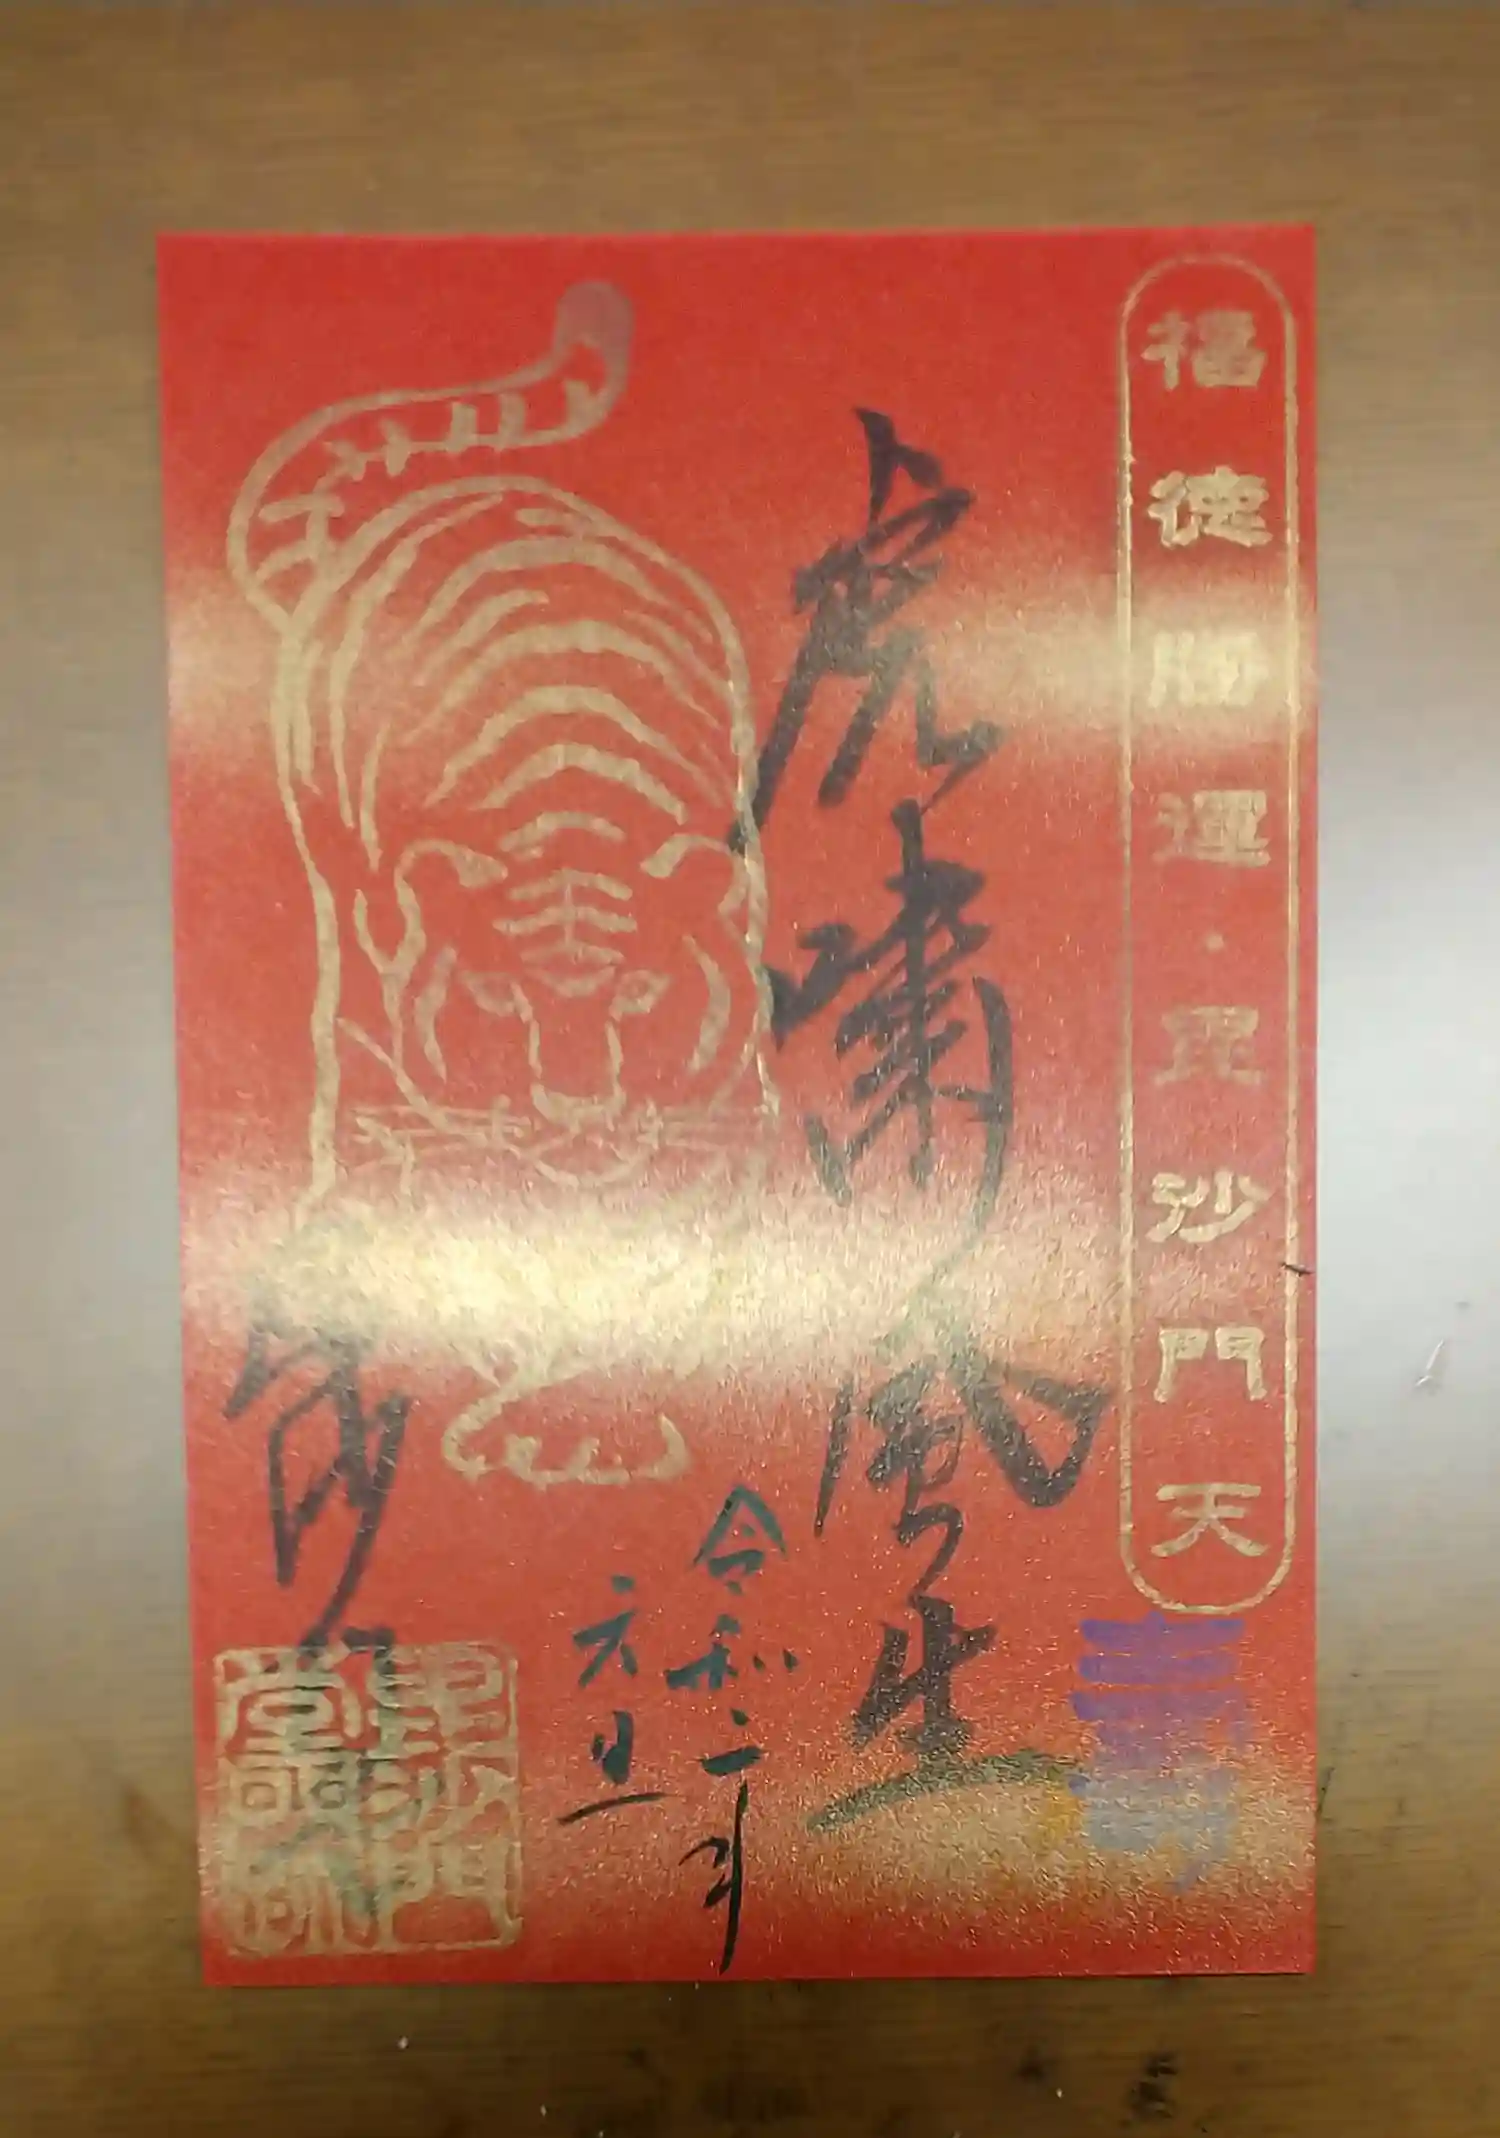 福徳勝運・毘沙門天
寿
虎嘯風生
令和二年
元旦
毘沙門
堂